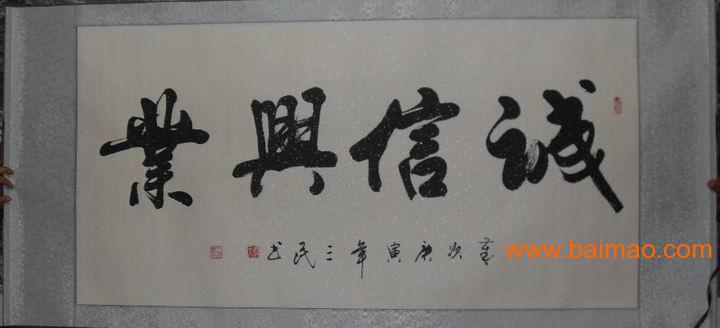 誠信興業
歲次庚寅年三民书
www.baimao.com